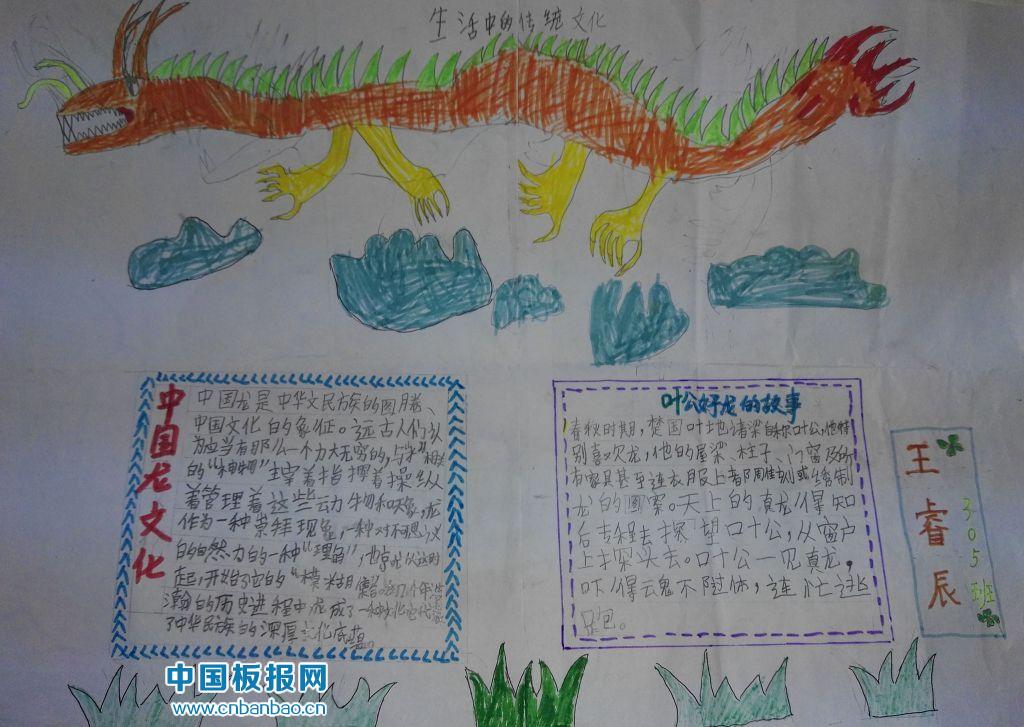 生活中的传统文化
中国龙文化
中国龙是中华文民族的图腾、
中国文化的象征。远古人们认
为应当有那么一个力大无穷的,与"
的"神物"主宰着指挥着操纵
着管理着这些动物和
作为一种崇拜现象,一种对不思议
的自然力的一种"理角",也
起,开始了它的"模糊
瀚的历史进程中龙成了一种文化它代表
了中华民族的深厚文化底蕴。
叶公好龙的故事
春秋时期,楚国叶地诸梁自称叶公,他特
别喜欢龙,他的屋梁、柱子、门窗及所
有家具甚至连衣服上都
龙的图案。天上的真龙得知
后去探望叶公,从窗户
上探头去。叶公一见真龙,
吓得云鬼不附体,连忙逃
跑。
王睿辰
305班
中国板报网
www.cnbanbao.cn